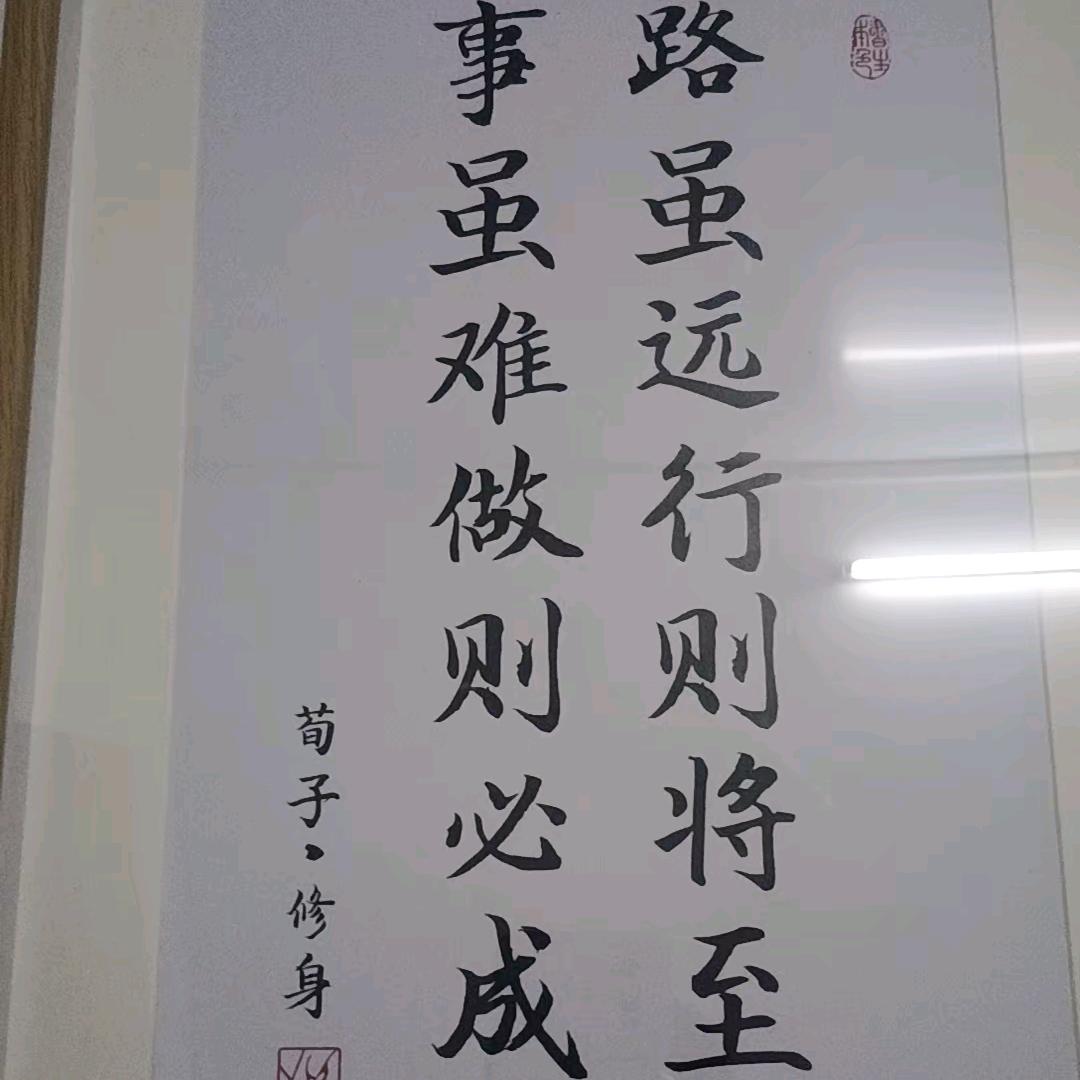 路虽远行则将至
事虽难做则必成
荀子、修身